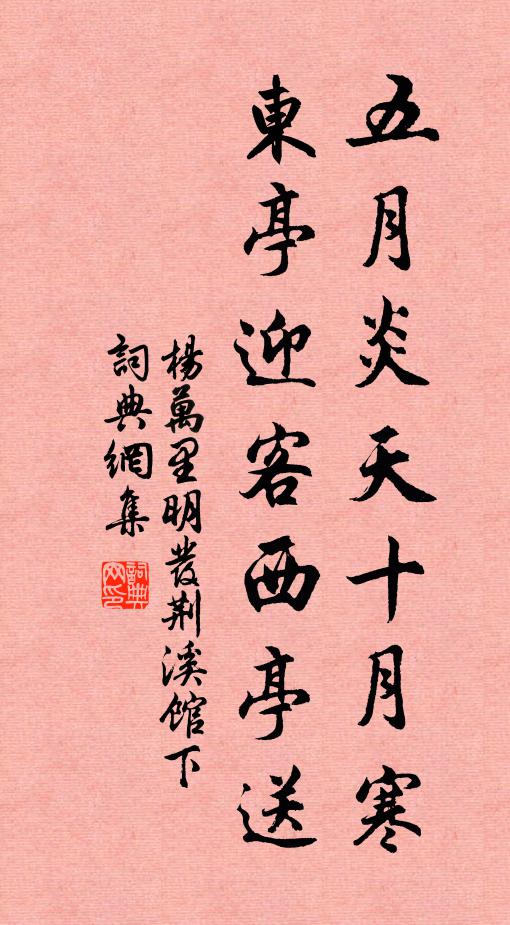 五月炎天十月寒
東亭迎客西亭送
楊萬里明發荆溪館下
詞典網集
詞典
网印